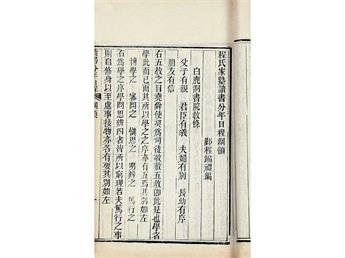 程氏家塾讀書分年日程綱領
鄞程端禮編
白鹿洞書院教條
父子有親　君臣有義　夫婦有別　長幼有序
朋友有信
右五教之目堯舜使契為司徒敬敷五教即此是也學者
學此而已而其所以學之之序亦有五焉其別如左
博學之　審問之　慎思之　明辨之　篤行之
右為學之序學問思辨四者皆所以窮理若夫篤行之事
則自修身以至處事接物亦各有要其別如左